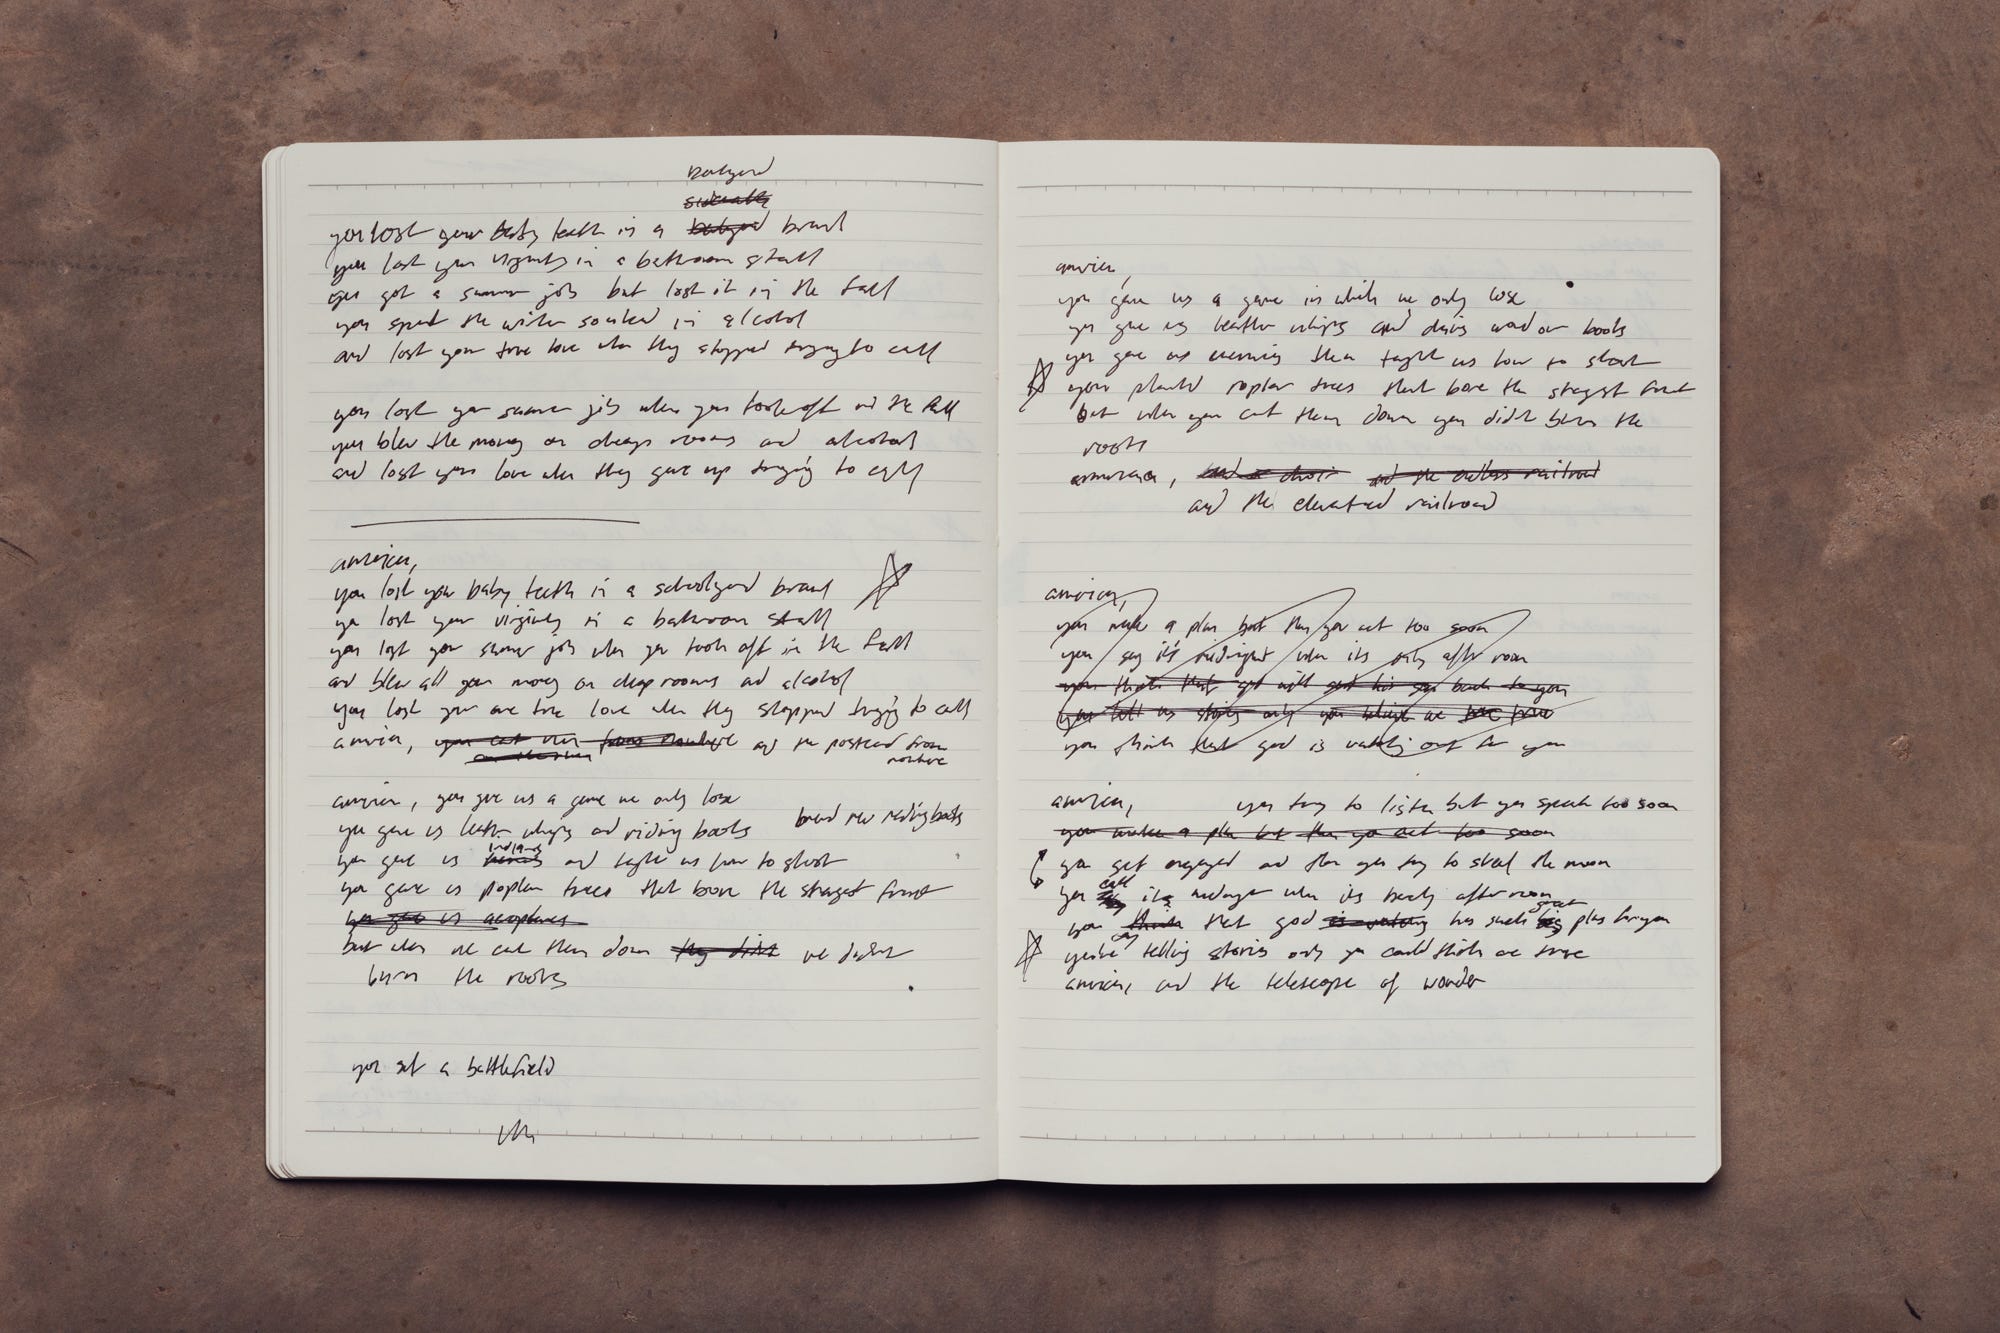 you lost your baby teeth in a brawl
you lost your virginity in a bathroom stall
you got a summer job but lost it in the fall
you spent the winter soaked in alcohol
and lost your true love when they stopped trying to call
you lost your summer job when you took off in the fall
you blew the money on cheap rooms and alcohol
and lost your love when they gave up trying to call
america,
you lost your baby teeth in a schoolyard brawl
you lost your virginity in a bathroom stall
you lost your summer job when you took off in the fall
and blew all your money on cheap rooms and alcohol
you lost your one true love when they stopped trying to call
america, and the postcard from
nowhere
america, you give us a game we only lose
you gave us leather whips and riding boots
brand new riding boots
indians
you gave us and taught us how to shoot
you gave us poplar trees that bore the strangest fruit
you gave us aeroplanes
but when we cut them down we didn't
burn the roots
you set a battlefield
america,
you gave us a game in which we only lose
you gave us leather whips and boots
you gave us enemies then taught us how to shoot
you planted poplar trees that bore the strangest fruit
but when you cut them down you didn't burn the
roots
america, and the endless railroad
and the elevated railroad
america,
you make a plan but then you act too soon
you say it's midnight when its only afternoon
you think that god will send his son back to you
you tell us stories only you believe are true
you think that god is watching out for you
america, you try to listen but you speak too soon
you make a plan but then you act too soon
you get engaged and then you try to steal the moon
call
you its midnight when its barely afternoon
great
you think that god is watching has such big plans for you
say
you're telling stories only you could think are true
america, and the telescope of wonder